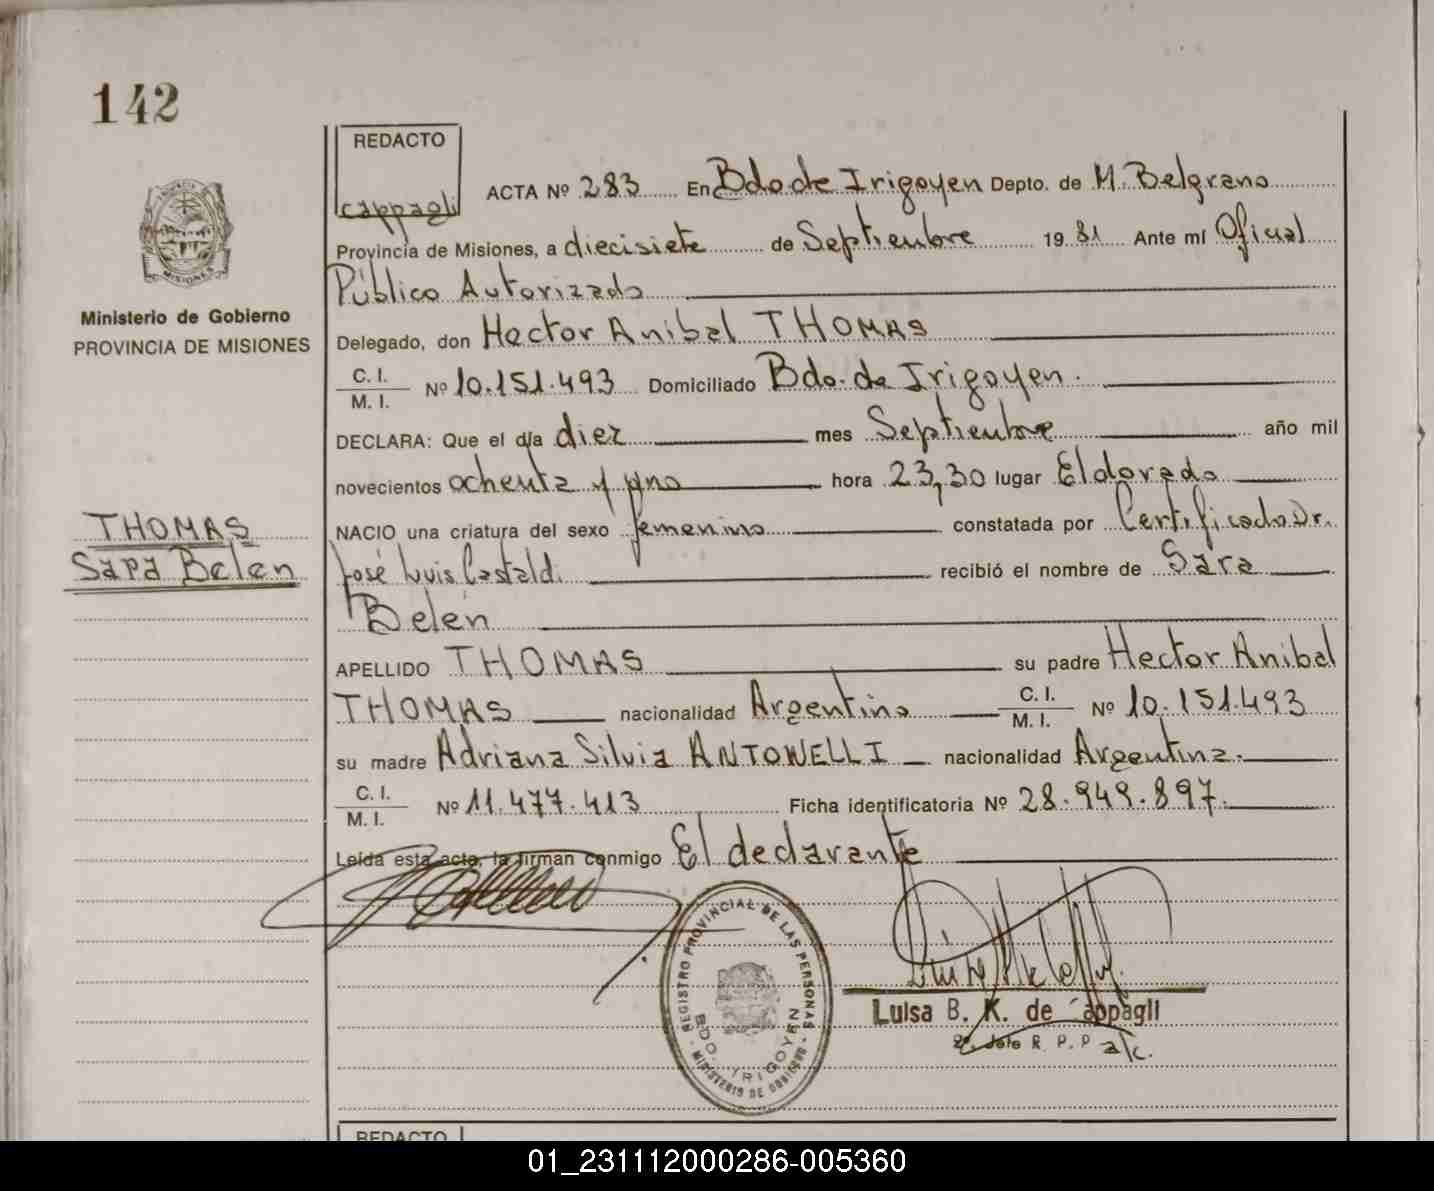 142
REDACTO
cappagli
ACTA Nº 283 En Bdo. de Irigoyen Depto. de M. Belgrano
Provincia de Misiones, a diecisiete de Septiembre 19 81 Ante mí Oficial
Público Autorizado
Ministerio de Gobierno
PROVINCIA DE MISIONES
Delegado, don Hector Anibal THOMAS
C. I.
M. I. Nº 10.151.493 Domiciliado Bdo. de Irigoyen.
DECLARA: Que el día diez mes Septiembre año mil
novecientos ochenta y uno hora 23,30 lugar Eldorado
THOMAS
Sara Belen
NACIO una criatura del sexo femenino constatada por Certificado Dr.
José Luis Castaldi recibió el nombre de Sara
Belén
APELLIDO THOMAS su padre Hector Anibal
THOMAS nacionalidad Argentino C. I. M. I. Nº 10.151.493
su madre Adriana Silvia ANTONELLI nacionalidad Argentina.
C. I.
M. I. Nº 11.477.413 Ficha identificatoria Nº 28.949.897.
Leída esta acta, la firman conmigo El declarante
REGISTRO PROVINCIAL DE LAS PERSONAS
BDO. IRIGOYEN
MINISTERIO DE GOBIERNO
MISIONES
Luisa B. K. de Cappagli
2º Jefe R. P. P a/c.
REDACTO
01_231112000286-005360